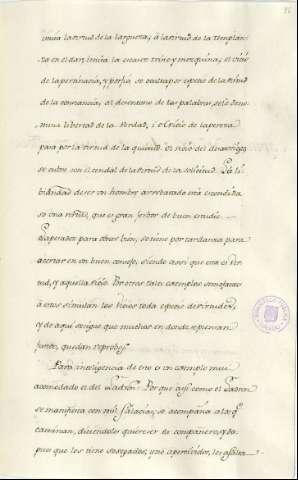 virtud de la largueza, a la virtud de la templan-
za en el dar, imita la escasez trino y mezquina; el vicio
de la pertinacia, y porfia se encubre por especie de la virtud
de la constancia, al desenfreno de las palabras, se le deno-
mina libertad de la verdad, i el vicio de la pereza
pasa por la virtud de la quietud. El vicio del desarreglo
se cubre con el cendal de la virtud de la solicitud. La li-
viandad de ser un hombre arrebatado esta escondida
so una virtud, que es gran fervor de buen estudio.
El esperar para obrar bien, se tiene por tardanza para
acertar en un buen consejo, siendo assi que esta es vir-
tud, y aquella vicio. Por otros tales exemplos semejantes
a estos simulan los vicios toda especie de virtudes,
y de aqui se sigue que muchos en donde se piensan
justos, quedan reprobos.
Para inteligencia de esto es un exemplo muy
acomodado el del Ladron. Porque assi como el Ladron
se manifiesta con mil falacias, se acompaña a los que
caminan, diciendoles quiere ser su compañero, y des-
pues que los tiene sosegados, y no apercibidos, los asalta